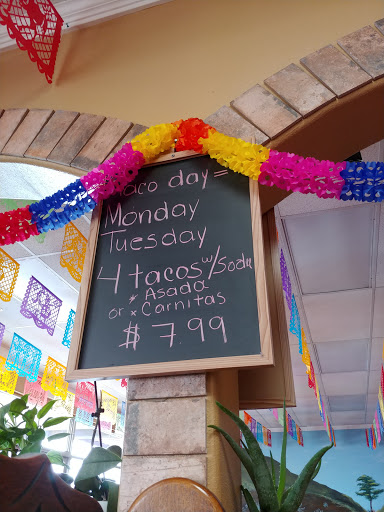 Taco day =
Monday
Tuesday
4 tacos w/Soda
* Asada
or * Carnitas
$7.99